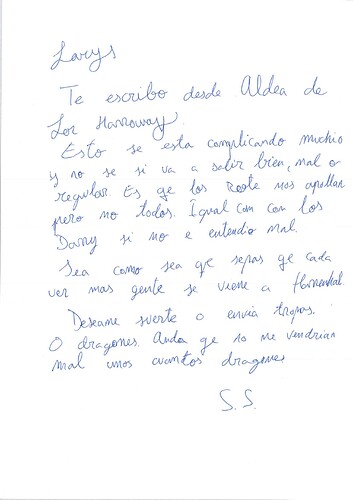 Larys
Te escribo desde Aldea de
Lor Harroway.
Esto se esta complicando muchio
y no se si va a salir bien, mal o
regular. Es qe los Roote nos apollan
pero no todos. Igual con con los
Darry si no e entendio mal.
Sea como sea qe sepas qe cada
ver mas gente se viene a Harrenhal.
Deseame suerte o envia tropas.
O dragones. Anda qe no me vendrian
mal unos cuantos dragones
S.S.